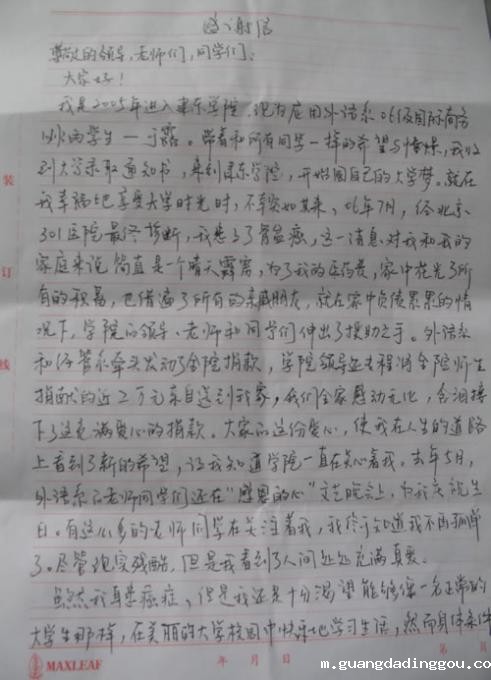 感谢信
尊敬的领导,老师们,同学们:
大家好!
我是2005年进入东学院,现为应用外语系06级国际商务
班的学生——于露。带着和所有同学一样的希望与憧憬,我收
到大学录取通知书,来到东学院,开始圆自己的大学梦。就在
我幸福地享受大学时光时,不幸突如其来,06年7月,经北京
301医院最终诊断,我患了骨盆癌,这一消息对我和我的
家庭来说简直是个晴天霹雳,为了我的医药费,家中花光了所
有的积蓄,也借遍了所有的亲戚朋友,就在家中负债累累的情
况下,学院的领导、老师和同学们伸出了援助之手。外语系
和经管系牵头发动了全院捐款,学院领导将全院师生
捐献的近2万元亲自送到我家,我们全家感动无比,含泪接
下了这充满爱心的捐款。大家的这份爱心,使我在人生的道路
上看到了新的希望,让我知道学院一直在关心着我。去年5月,
外语系的老师同学们还在“感恩的心”文艺晚会上,为我庆祝生
日。有这么多的老师同学在关注着我,我终于知道我不再孤单
了。尽管现实残酷,但是我看到了人间处处充满真爱。
虽然我身患癌症,但是我还是十分渴望能够像一名正常的
大学生那样,在美丽的大学校园中快乐地学习生活,然而身体条件
装
订
线
MAXLEAF 年 月 日 第 页
m.guangdadinggou.co